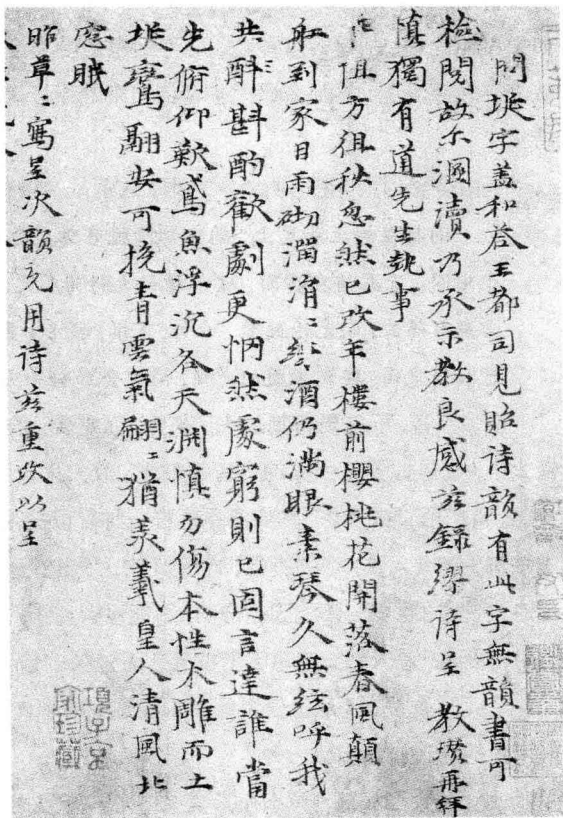 問埏字蓋和答王都司見貽诗韻有此字無韻書可
檢閱故尔溷瀆乃承示教良感兹録繆诗呈 教瓚再拜
慎獨有道先生執事
徂方徂秋忽然已改年樓前櫻桃花開落春風顛
舡到家日雨砌潤涓〻餘酒仍满眼素琴久無絃呼我
共酙斟酌歡劇更惘然處窮則已固言達誰當
先俯仰歎鳶魚浮沉各天渊慎勿傷本性木雕而土
埏鸞翮安可挽青雲氣翩〻猶羡羲皇人清風北
窓眠
昭草〻寫呈次韻先用诗兹重改以呈